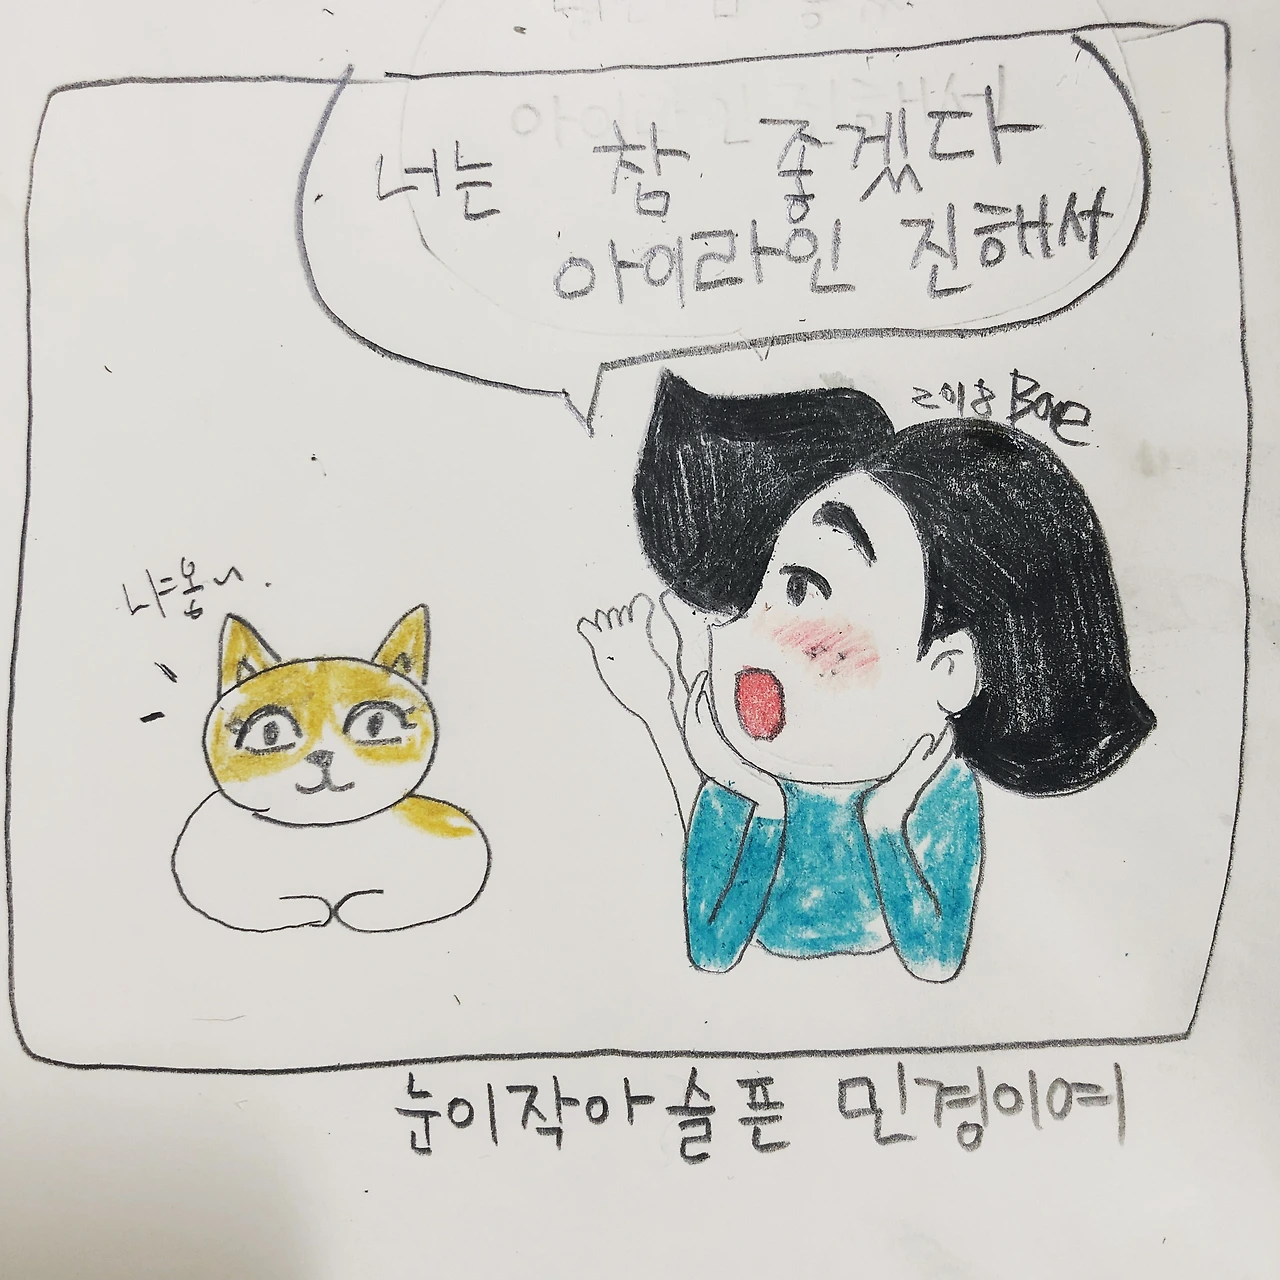 너는 참 좋겠다
아이라인 진해서
Bae
냐옹~.
눈이작아 슬픈 민경이여